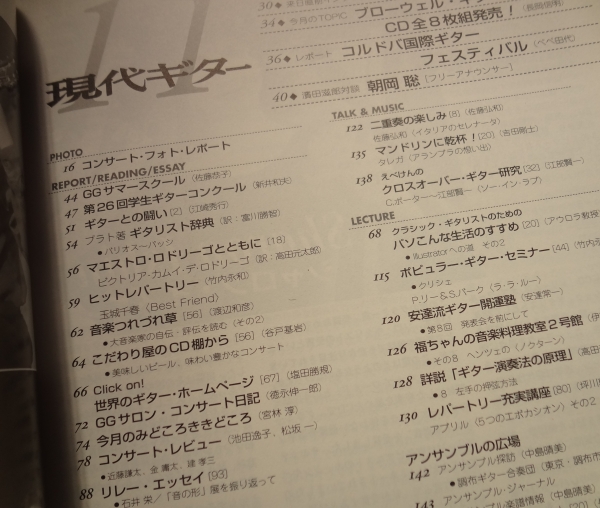 11
現代ギター
34◆ 今月のTOPIC ブローウェル・ギ
CD全8枚組発売！
36◆ レポート コルドバ国際ギター
フェスティバル
40◆ 濱田滋郎対談 朝岡 聡 [フリーアナウンサー]
PHOTO
16 コンサート・フォト・レポート
REPORT/READING/ESSAY
44 GGサマースクール (佐藤恭子)
47 第26回学生ギターコンクール (新井和夫)
51 ギターとの闘い [2] (江崎秀行)
54 プラト著 ギタリスト辞典 (訳：富川勝智)
●バリオス＝バッジ
56 マエストロ・ロドリーゴとともに [18]
ビクトリア・カムイ・デ・ロドリーゴ (訳：高田元太郎)
59 ヒットレパートリー (竹内永和)
玉城千春 (Best Friend)
62 音楽つれづれ草 [56] (渡辺和彦)
●大音楽家の自伝・評伝を読む (その2)
64 こだわり屋のCD棚から [56] (谷戸基岩)
●美味しいビール、味わい豊かなコンサート
66 Click on!
世界のギター・ホームページ [67] (塩田勝規)
72 GGサロン・コンサート日記 (徳永伸一郎)
74 今月のみどころききどころ (宮林 淳)
78 コンサート・レビュー (池田逸子、松坂 一)
●近藤謙太、金 庸太、建 孝三
88 リレー・エッセイ [93]
●石井 栄／「音の形」展を振り返って
TALK & MUSIC
122 二重奏の楽しみ [8] (佐藤弘和)
佐藤弘和 (イタリアのセレナータ)
135 マンドリンに乾杯！ [20] (吉田剛士)
タレガ (アランブラの想い出)
138 えべけんの
クロスオーバー・ギター研究 [32] (江部賢一)
C.ポーター〜江部賢一 (ソー・イン・ラブ)
LECTURE
68 クラシック・ギタリストのための
パソこんな生活のすすめ [20] (アウロラ戦狼
●Illustratorへの道 その2
115 ポピュラー・ギター・セミナー [44] (竹内
●クリシェ
P.リー&S.パーク (ラ・ラ・ルー)
120 安達流ギター開運塾 (安達常一)
●第8回 発表会を前にして
126 福ちゃんの音楽料理教室2号館
●その8 ヘンツェの (ノクターン)
128 詳説「ギター演奏法の原理」(高田
●8 左手の押弦方法
130 レパートリー充実講座 [80] (坪川
アブリル (5つのエボカシオン) その2
アンサンブルの広場
142 アンサンブル探訪 (中島晴美)
●調布ギター合奏団 (東京・調布市
143 アンサンブル・ジャーナル
アンサンブル楽譜情報 (中島晴美)